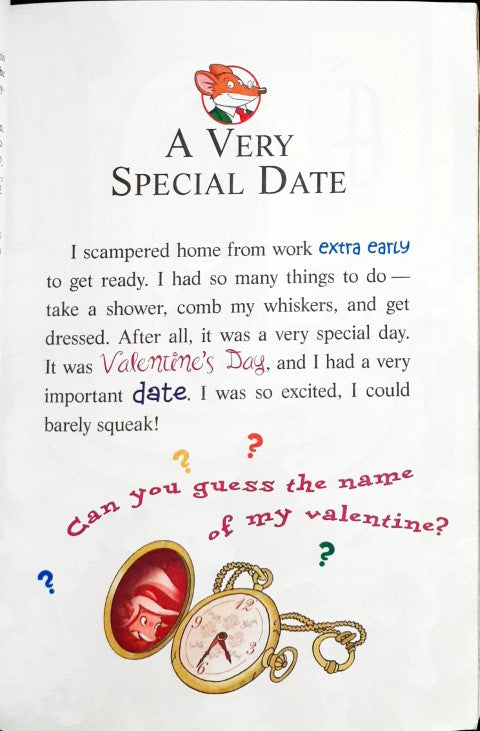 A VERY
SPECIAL DATE
I scampered home from work extra early
to get ready. I had so many things to do —
take a shower, comb my whiskers, and get
dressed. After all, it was a very special day.
It was Valentine's Day, and I had a very
important date. I was so excited, I could
barely squeak!
? ?
Can you guess the name
of my valentine?
? ?
12
3
6